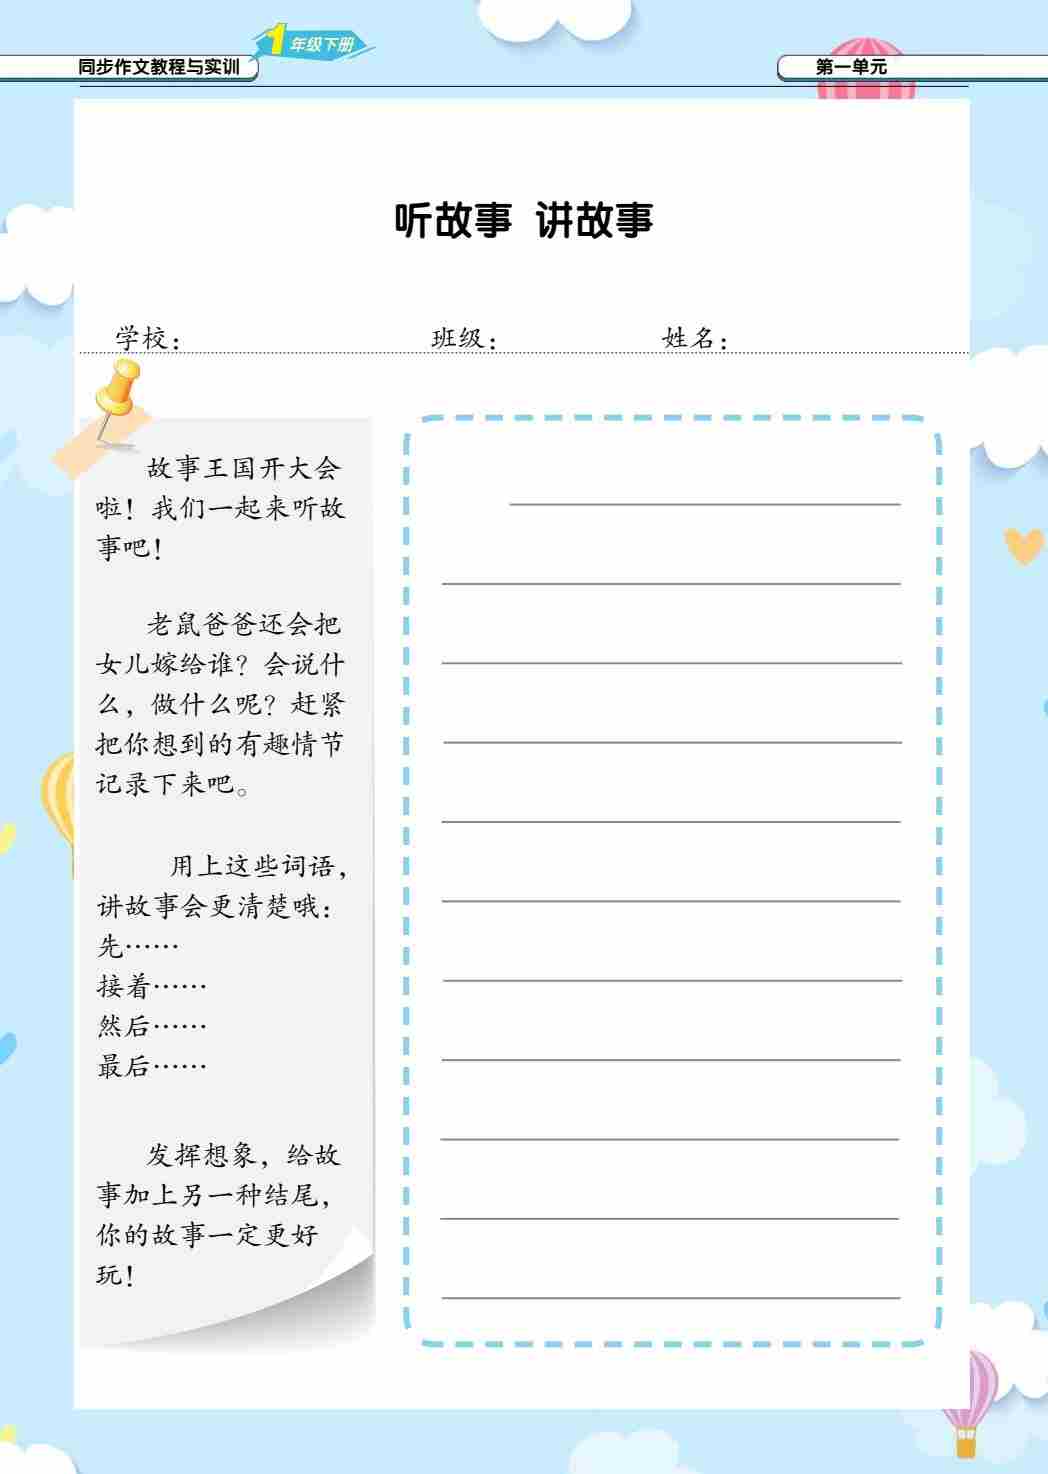 1年级下册
同步作文教程与实训
第一单元
听故事 讲故事
学校： 班级： 姓名：
故事王国开大会
啦！我们一起来听故
事吧！
老鼠爸爸还会把
女儿嫁给谁？会说什
么，做什么呢？赶紧
把你想到的有趣情节
记录下来吧。
用上这些词语，
讲故事会更清楚哦：
先……
接着……
然后……
最后……
发挥想象，给故
事加上另一种结尾，
你的故事一定更好
玩！